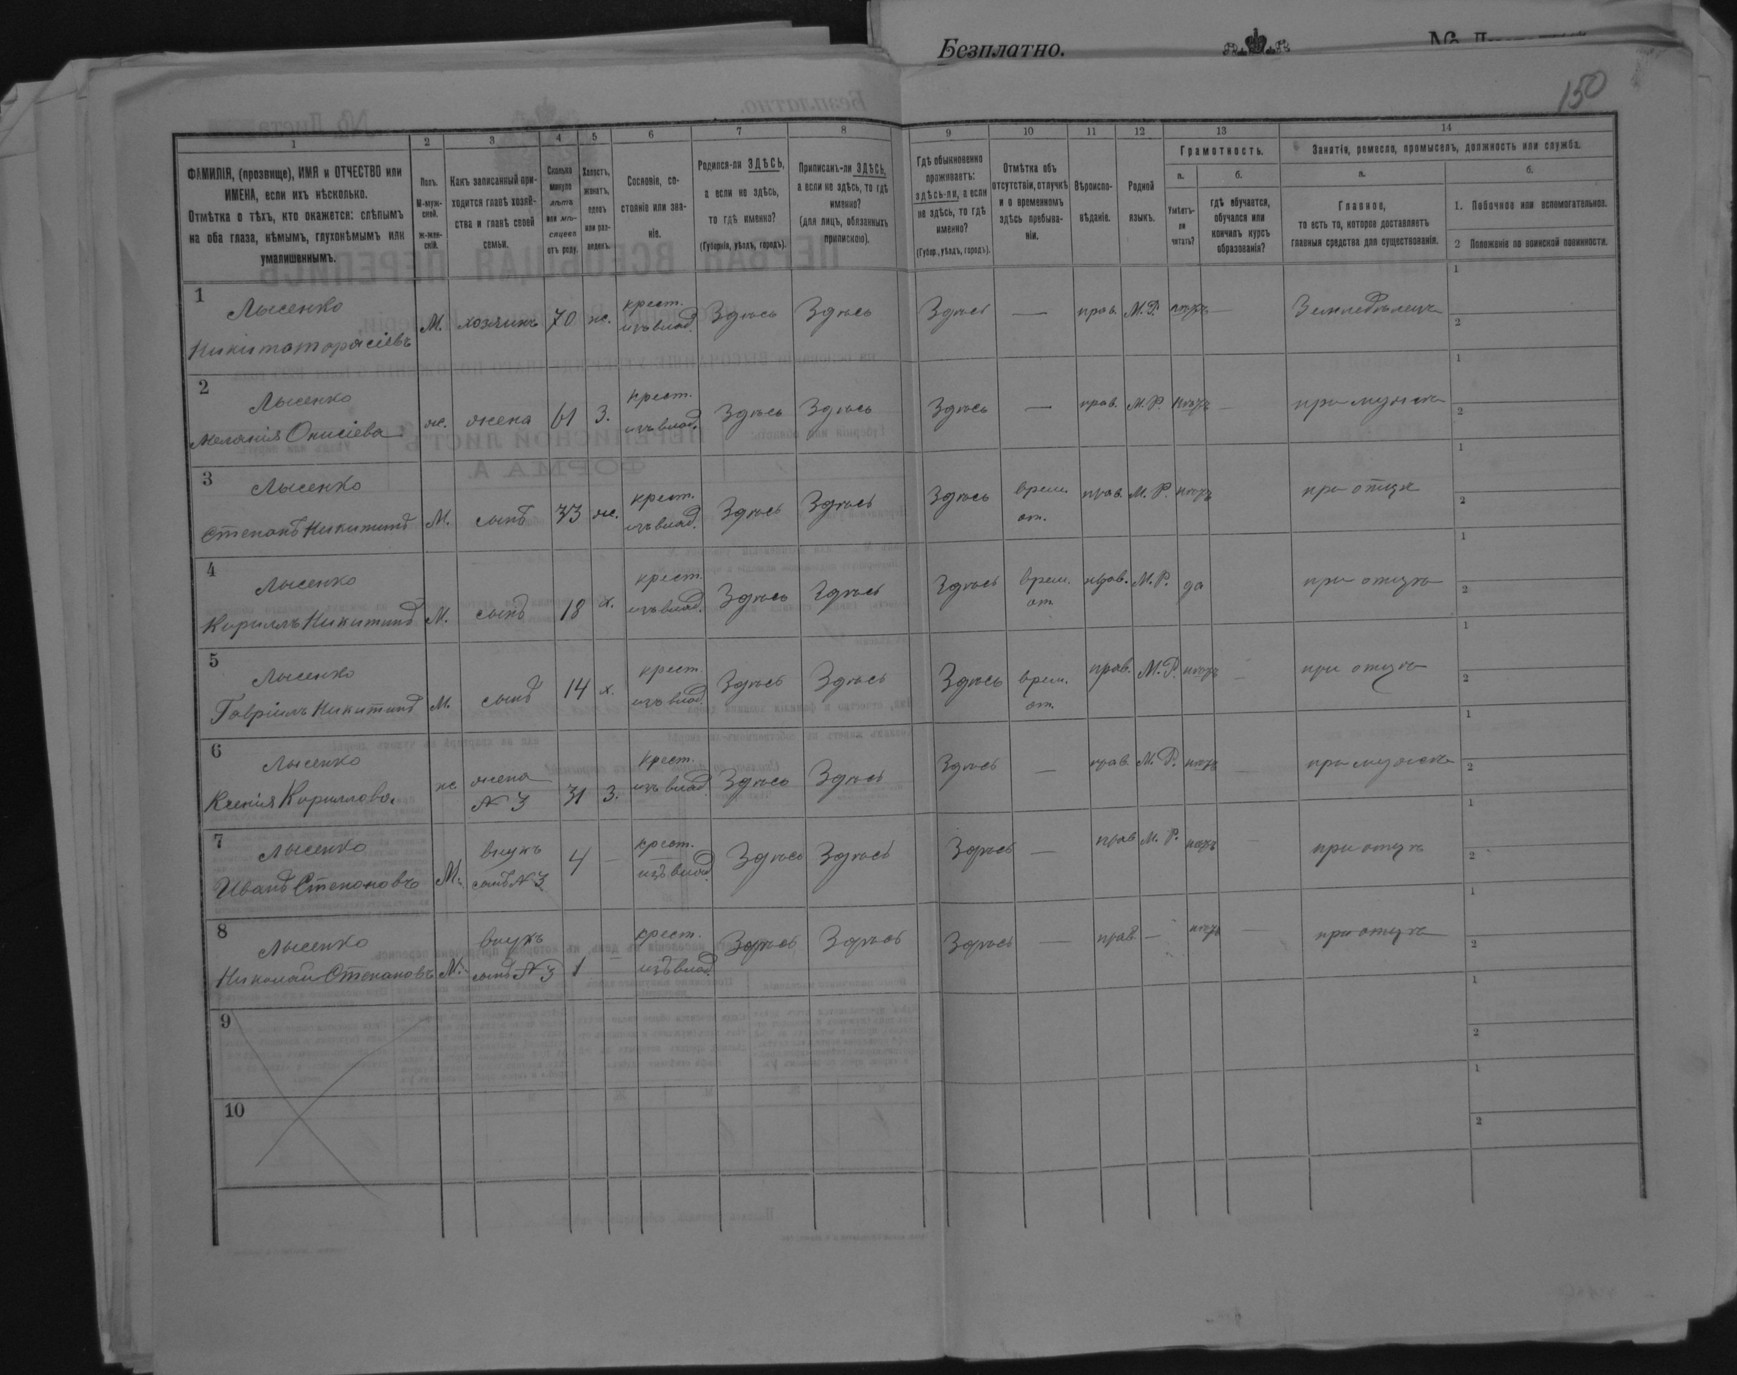 Безплатно.
150
1 2 3 4 5 6 7 8 9 10 11 12 13 14
ФАМИЛІЯ, (прозвище), ИМЯ и ОТЧЕСТВО или
ИМЕНА, если ихъ нѣсколько.
Отмѣтка о тѣхъ, кто окажется: слѣпымъ
на оба глаза, нѣмымъ, глухонѣмымъ или
умалишеннымъ.
Полъ.
М-муж-
ской.
ж-жен-
скій.
Какъ записанный при-
ходится главѣ хозяй-
ства и главѣ своей
семьи.
Сколько
минуло
лѣтъ
или мѣ-
сяцевъ
отъ роду.
Холостъ,
женатъ,
вдовъ
или раз-
веденъ.
Сословіе, со-
стояніе или зва-
ніе.
Родился-ли ЗДѢСЬ,
а если не здѣсь,
то гдѣ именно?
(Губернія, уѣздъ, городъ).
Приписанъ-ли ЗДѢСЬ,
а если не здѣсь, то гдѣ
именно?
(для лицъ, обязанныхъ
припискою).
Гдѣ обыкновенно
проживаетъ:
здѣсь-ли, а если
не здѣсь, то гдѣ
именно?
(Губер., уѣздъ, городъ).
Отмѣтка объ
отсутствіи, отлучкѣ
и о временномъ
здѣсь пребыва-
ніи.
Вѣроиспо-
вѣданіе.
Родной
языкъ.
Грамотность.
а.
Умѣетъ-
ли
читать?
б.
гдѣ обучается,
обучался или
кончилъ курсъ
образованія?
Занятіе, ремесло, промыселъ, должность или служба.
а.
Главное,
то есть то, которое доставляетъ
главныя средства для существованія.
б.
1. Побочное или вспомогательное.
2 Положеніе по воинской повинности.
1 Лысенко крест. 1
Никита Тарасіевъ М. хозяинъ 70 ж. изъ влад. Здѣсь Здѣсь Здѣсь — прав. М. Р. нѣтъ — Земледѣлецъ 2
2 Лысенко крест. 1
Меланія Онисіева ж. жена 61 З. изъ влад. Здѣсь Здѣсь Здѣсь — прав. М. Р. нѣтъ — при мужѣ 2
3 Лысенко крест. врем. 1
Степанъ Никитинъ М. сынъ 33 ж. изъ влад. Здѣсь Здѣсь Здѣсь от. прав. М. Р. нѣтъ при отцѣ 2
4 Лысенко крест. врем. 1
Кириллъ Никитинъ М. сынъ 18 х. изъ влад. Здѣсь Здѣсь Здѣсь от. прав. М. Р. да при отцѣ 2
5 Лысенко крест. врем. 1
Гавріилъ Никитинъ М. сынъ 14 х. изъ влад. Здѣсь Здѣсь Здѣсь от. прав. М. Р. нѣтъ — при отцѣ 2
6 Лысенко жена крест. 1
Ксенія Кириллова ж № 3 31 З. изъ влад. Здѣсь Здѣсь Здѣсь — прав. М. Р. нѣтъ — при мужѣ 2
7 Лысенко внукъ крест. 1
Иванъ Степановъ М. сынъ № 3 4 — изъ влад. Здѣсь Здѣсь Здѣсь — прав. М. Р. нѣтъ — при отцѣ 2
8 Лысенко внукъ крест. 1
Николай Степановъ М. сынъ № 3 1 — изъ влад. Здѣсь Здѣсь Здѣсь — прав. — нѣтъ — при отцѣ 2
9 1
2
10 1
2